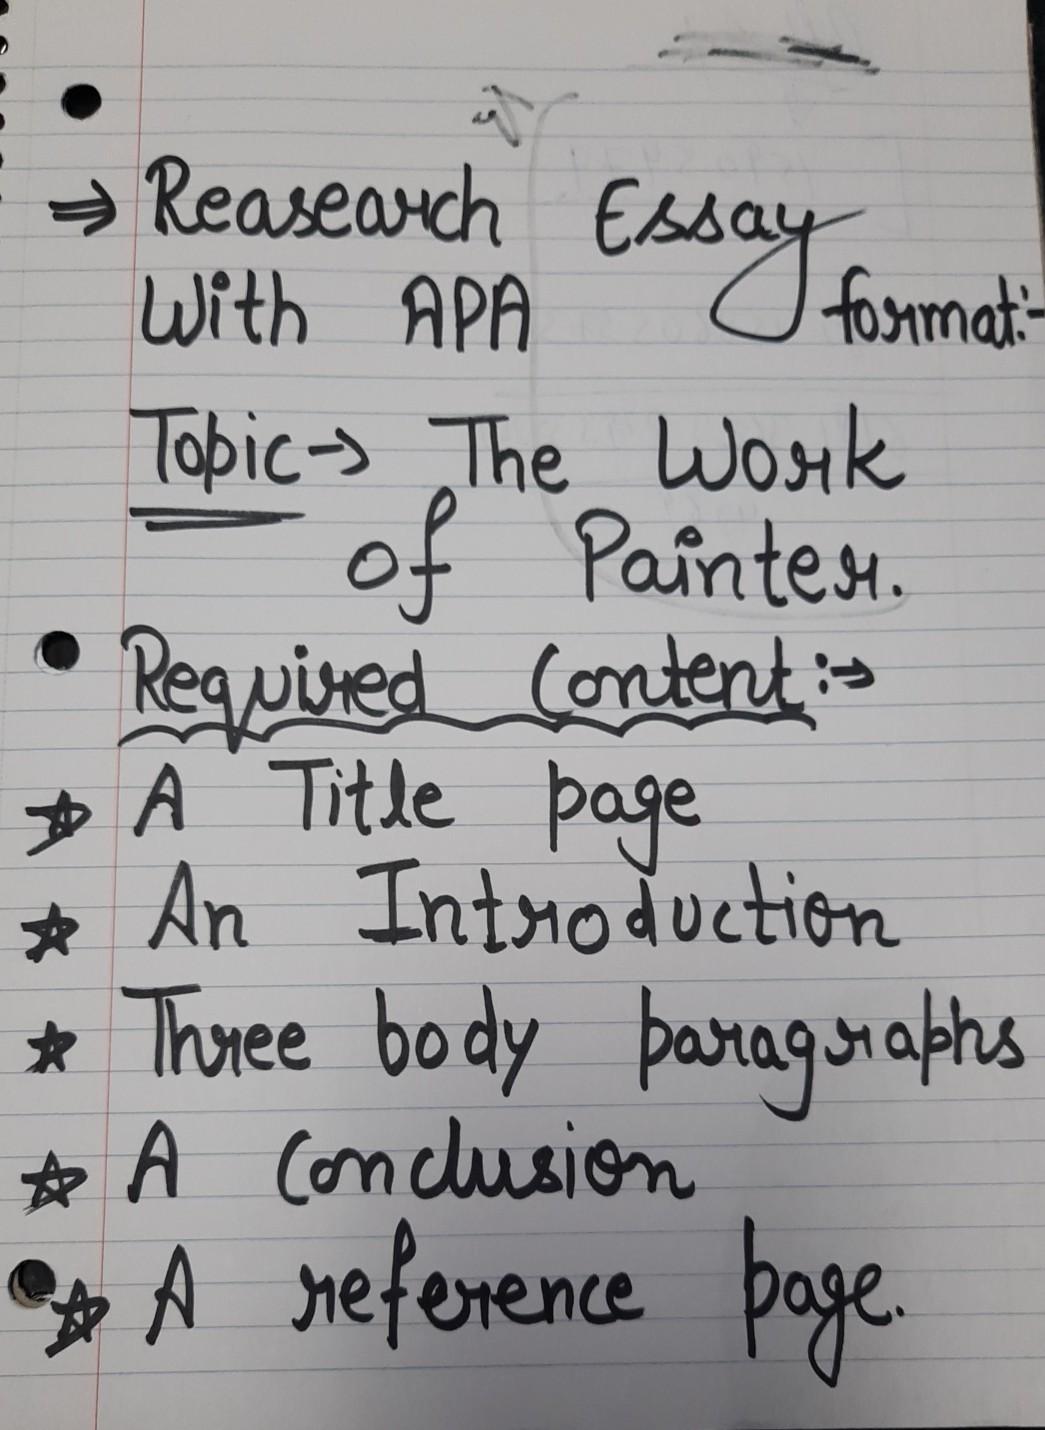 ⇒ Reasearch Essay
With APA format:-
Topic → The Work
of Painter.
Required Content :→
☆ A Title page
☆ An Introduction
☆ Three body paragraphs
☆ A Conclusion
☆ A reference page.